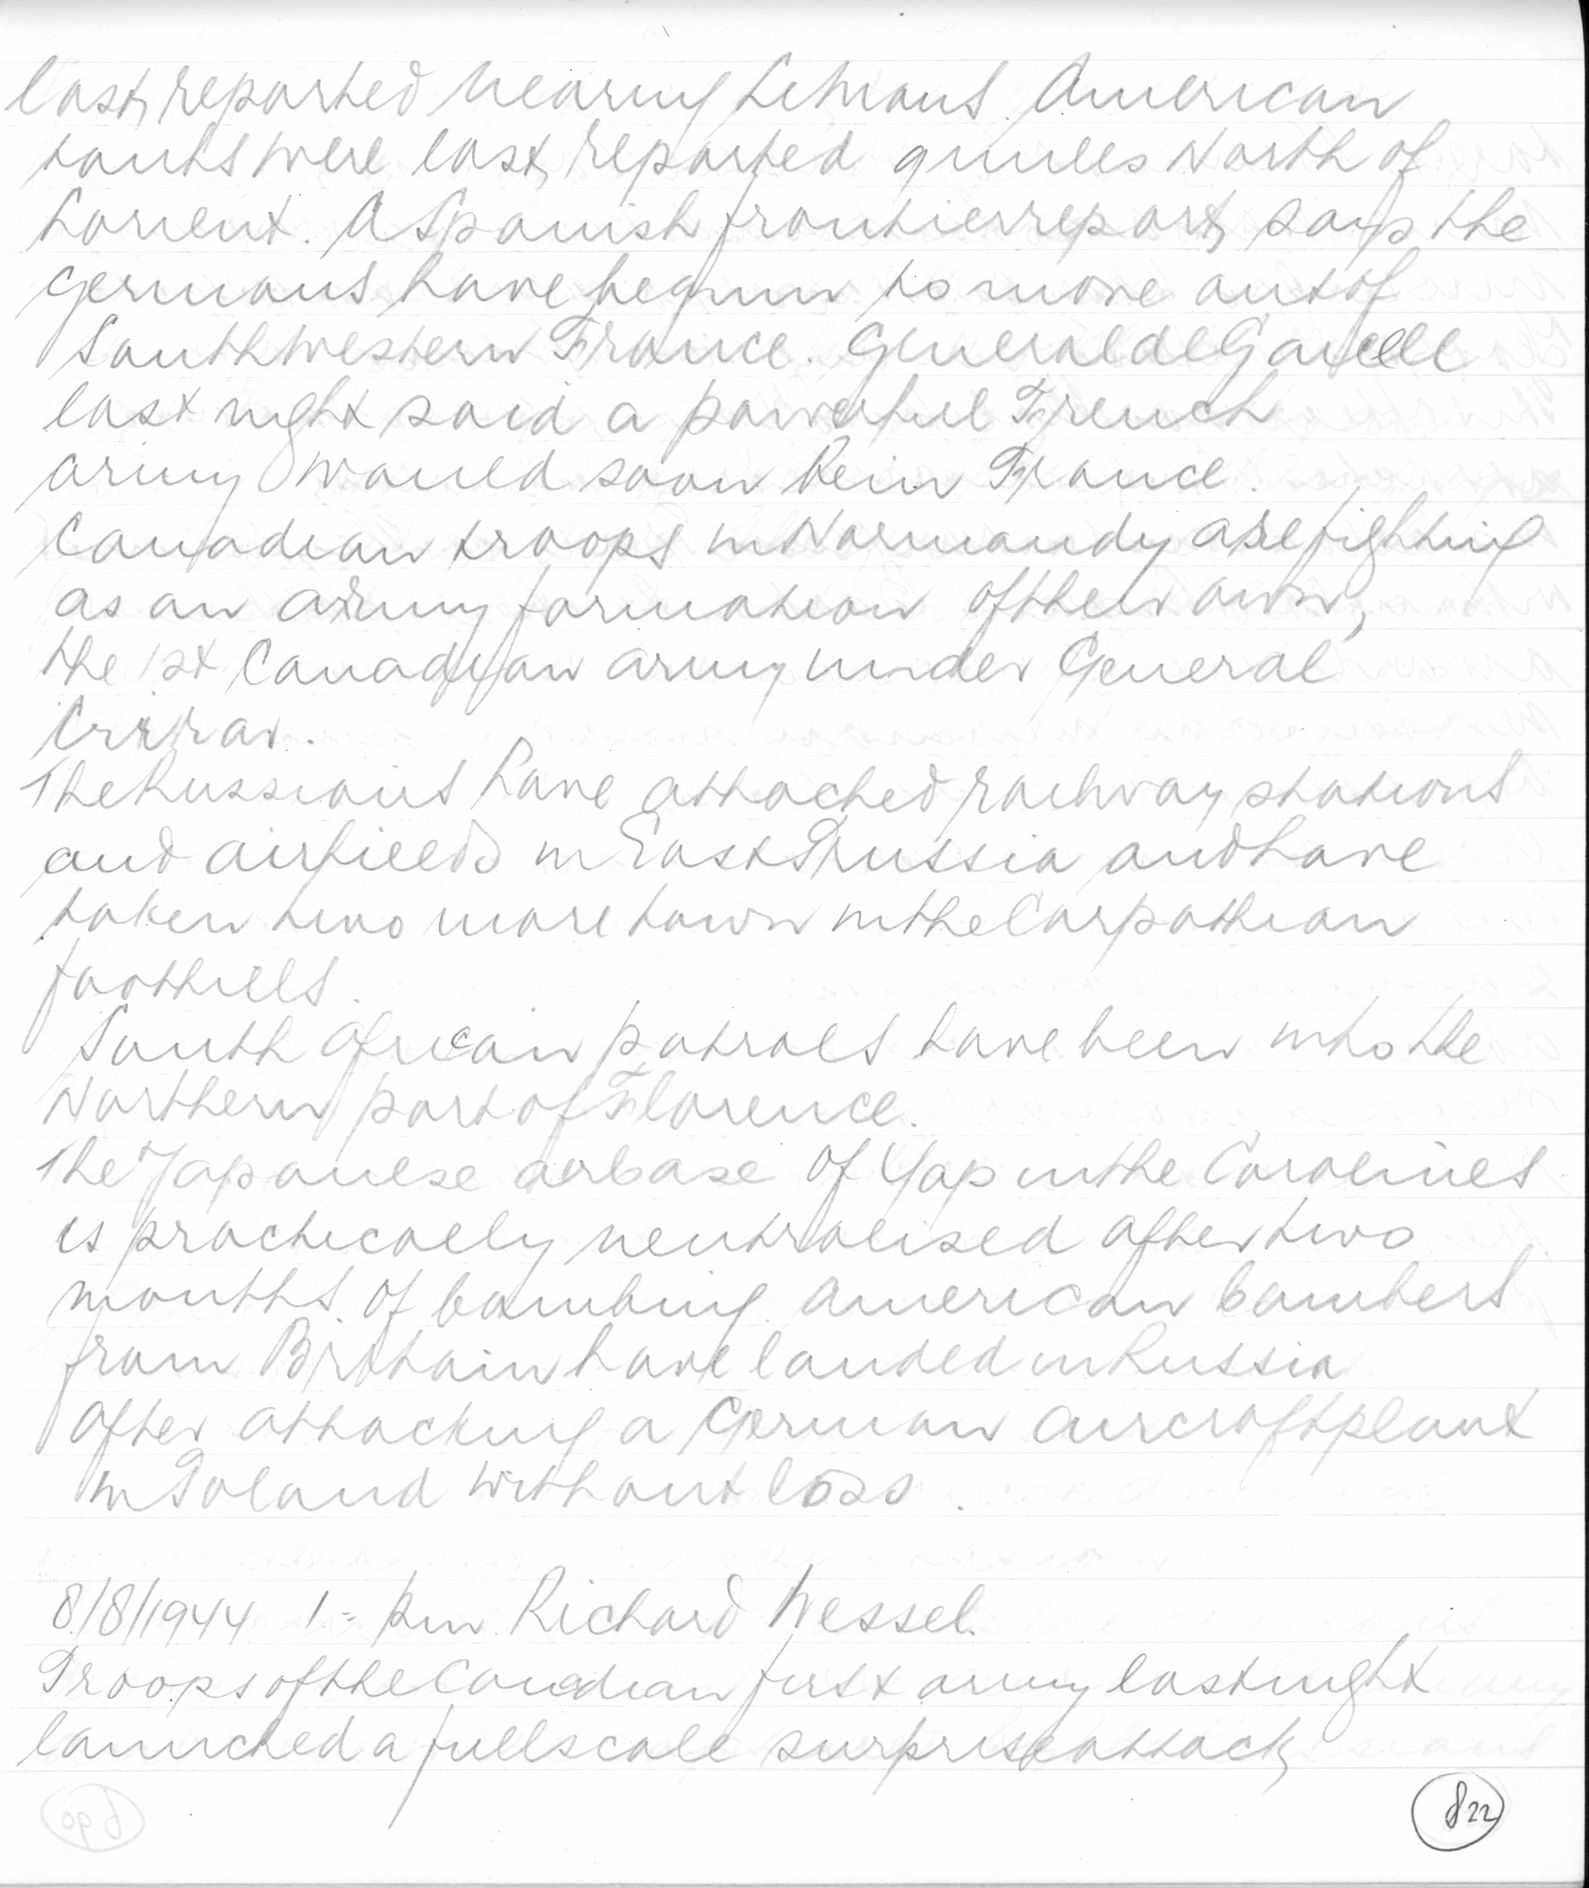 last reported nearing Le Mans. American
tanks were last reported 9 miles North of
Lorient. A Spanish frontierreport says the
Germans have begun to move out of
Southwestern France. General de Gaulle
last night said a powerful French
army would soon be in France.
Canadian troops in Normandy are fighting
as an army formation of their own,
the 1st Canadian army under General
Crirar.
The Russians have attacked railway stations
and airfields in East Prussia and have
taken two more town in the Carpathian
foothills.
South African patrols have been into the
Northern part of Florence.
The Japanese airbase of Yap in the Carolines
is practically neutralised after two
months of bombing. American bombers
from Britain have landed in Russia
after attacking a German aircraftplant
in Poland without loss.
8/8/1944 1.= pm Richard Wessel.
Troops of the Canadian first army last night
launched a fullscale surprise attack
822